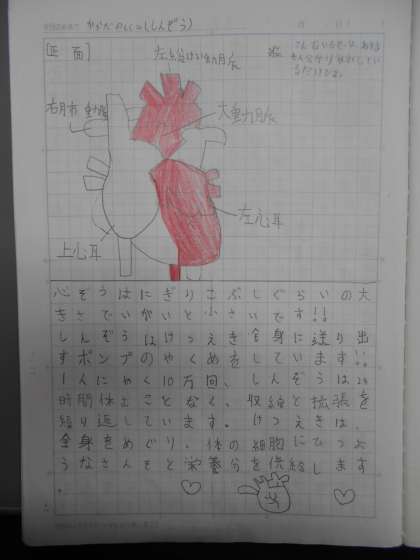 からだのしくみ(しんぞう)
[正面]
大動脈
左心耳
上心耳
心ぞうはにぎりこぶしぐらいの大
きさでいがいと小さいです!!
しんぞうはけつえきを全身に送り出
すポンプのやくめをしています!!
1人にやく10万回、しんぞうは24
時間休むことなく、収縮と拡張を
繰り返しています。けつえきは、
全身をめぐり、体の細胞にひつよ
うなさんそと栄養分を供給します
。